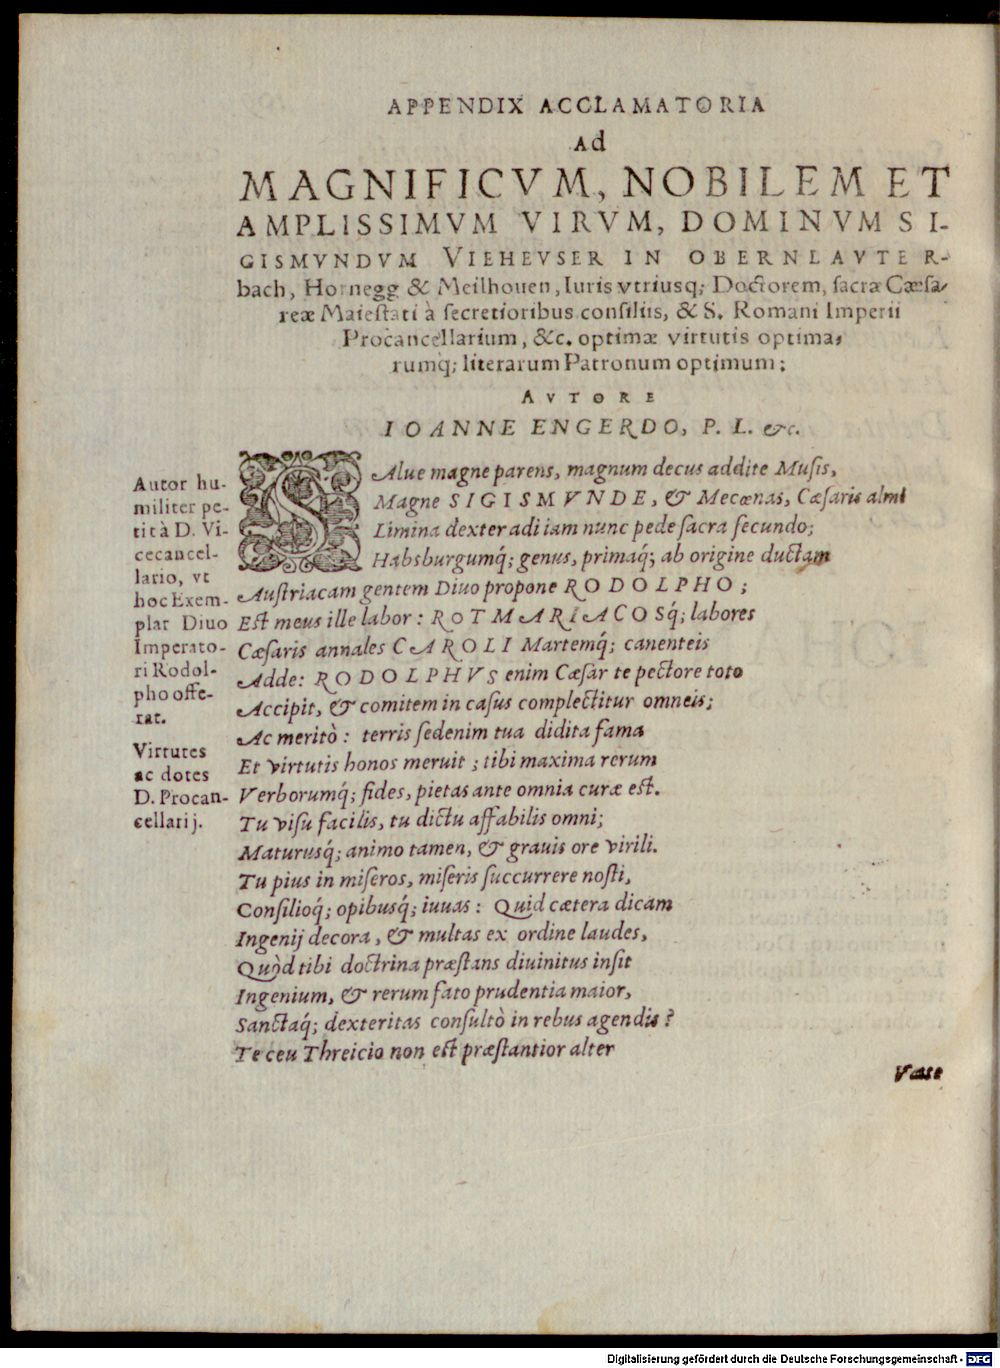 APPENDIX ACCLAMATORIA
Ad
MAGNIFICVM, NOBILEM ET
AMPLISSIMVM VIRVM, DOMINVM SI-
GISMVNDVM VIEHEVSER IN OBERNLAVTER-
bach, Hornegg & Meilhouen, Iuris vtriusq; Doctorem, sacræ Cæsa-
reæ Maiestati à secretioribus consiliis, & S. Romani Imperii
Procancellarium, &c. optimæ virtutis optima-
rumq́; literarum Patronum optimum:
AVTORE
IOANNE ENGERDO, P. L. &c.
SAlue magne parens, magnum decus addite Musis,
Magne SIGISMVNDE, & Mecœnas, Cæsaris almi
Limina dexter adi iam nunc pede sacra secundo;
Habsburgumq́; genus, primaq́; ab origine ductam
Austriacam gentem Diuo propone RODOLPHO;
Est meus ille labor: ROTMARIACOSq́; labores
Cæsaris annales CAROLI Martemq́; canenteis
Adde: RODOLPHVS enim Cæsar te pectore toto
Accipit, & comitem in casus complectitur omneis;
Ac meritò: terris sedenim tua didita fama
Et virtutis honos meruit; tibi maxima rerum
Verborumq́; fides, pietas ante omnia curæ est.
Tu visu facilis, tu dictu affabilis omni;
Maturusq́; animo tamen, & grauis ore virili.
Tu pius in miseros, miseris succurrere nosti,
Consilioq́; opibusq́; iuuas: Quid cætera dicam
Ingenij decora, & multas ex ordine laudes,
Quòd tibi doctrina præstans diuinitus insit
Ingenium, & rerum fato prudentia maior,
Sanctaq́; dexteritas consultò in rebus agendis?
Te ceu Threicio non est præstantior alter
Vate
Autor hu-
militer pe-
tit à D. Vi-
cecancel-
lario, vt
hoc Exem-
plar Diuo
Imperato-
ri Rodol-
pho offe-
rat.
Virtutes
ac dotes
D. Procan-
cellarij.
Digitalisierung gefördert durch die Deutsche Forschungsgemeinschaft - DFG